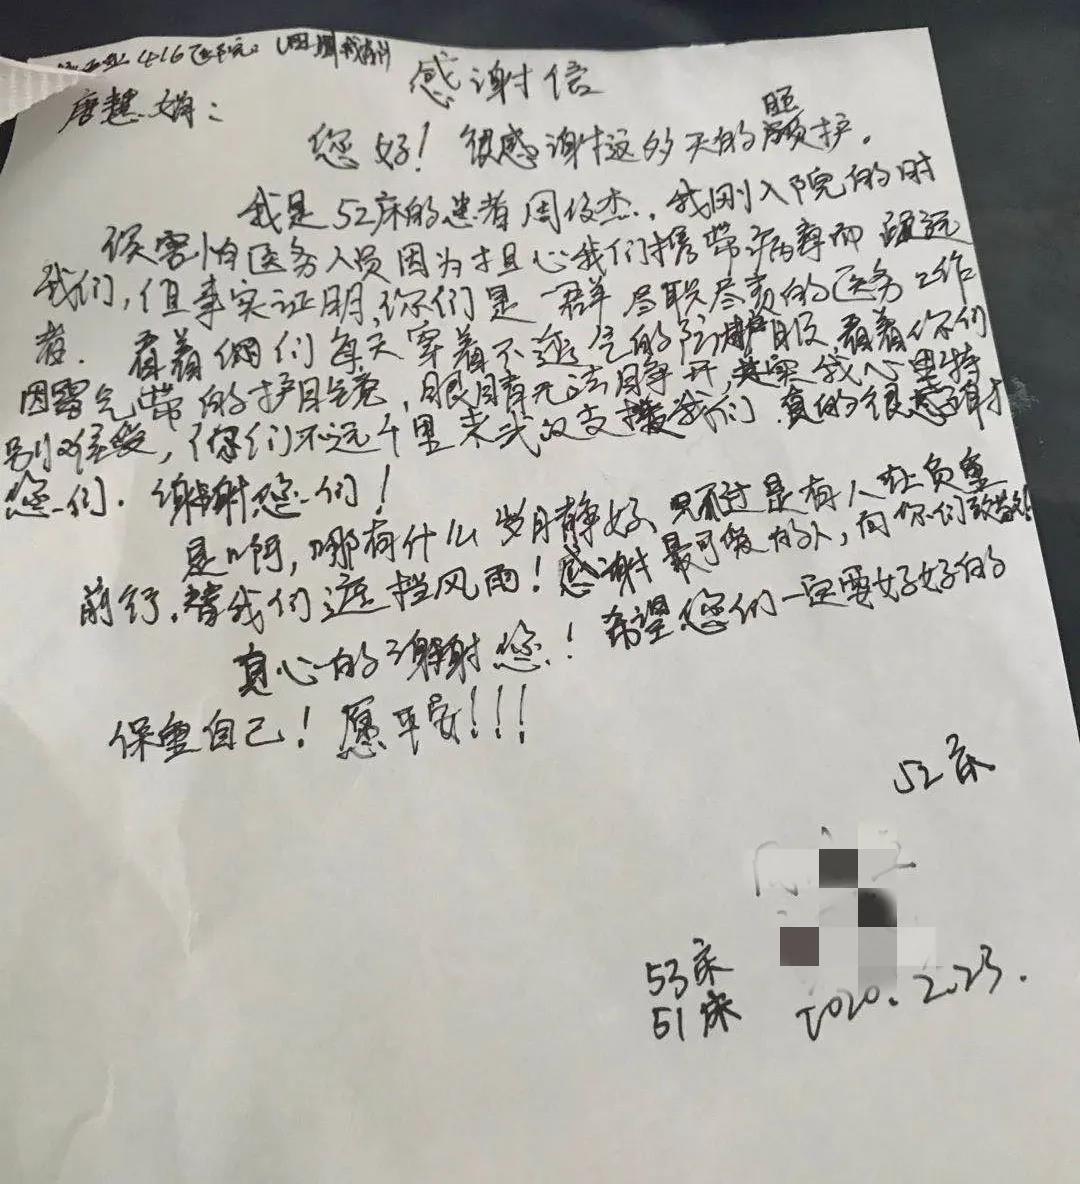 416医院
感谢信
唐慧娟：
您好！很感谢这的天的照顾护。
我是52床的患者周俊杰，我刚入院的时
候害怕医务人员因为担心我们携带病毒而疏远
我们，但事实证明，你们是一群尽职尽责的医务工作
者．看着你们每天穿着不透气的防护服，看着你们
因雾气带的护目镜，眼睛无法睁开，其实我心里特
别难受，你们不远千里来武汉支援我们．真的很感谢
您们．谢谢您们！
是啊，哪有什么岁月静好、只不过是有人在负重
前行，替我们遮挡风雨！感谢最可爱的人，向你们致敬！
真心的谢谢您！希望您们一定要好好的
保重自己！愿平安！！！
52床
53床
51床
2020.2.23.